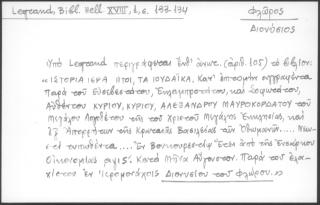 Legrand, Bibl. Hell XVIII, I, σ. 133-134
Φλῶρος
Διονύσιος
Ὑπὸ Legrand περιγράφεται ὑπ' ἀριθ. (ἀριθ. 105) τὸ βιβλίον:
«ΙΣΤΟΡΙΑ ΙΕΡΑ ΗΤΟΙ, ΤΑ ΙΟΥΔΑΪΚΑ, Κατ' ἐπιτομὴν συγγραφέντα
Παρὰ τοῦ Εὐσεβεστάτου, Ἐκλαμπροτάτου, καὶ Σοφωτάτου,
Αὐθέντου ΚΥΡΙΟΥ, ΚΥΡΙΟΥ, ΑΛΕΞΑΝΔΡΟΥ ΜΑΥΡΟΚΟΡΔΑΤΟΥ τοῦ
Μεγάλου Λογοθέτου τῆς τοῦ Χριστοῦ Μεγάλης Ἐκκλησίας, καὶ
ἐξ Ἀπορρήτων τῆς Κραταιᾶς Βασιλείας τῶν Ὀθωμανῶν..... Νεωστὶ
τυπωθέντα..... Ἐν Βουκουρεστίῳ Ἔτει ἀπὸ τῆς Ἐνσάρκου
Οἰκονομίας αψιϛ΄. Κατὰ Μῆνα Αὔγουστον. Παρὰ τοῦ ἐλαχίστου
ἐν Ἱερομονάχοις Διονυσίου τοῦ Φλώρου.»